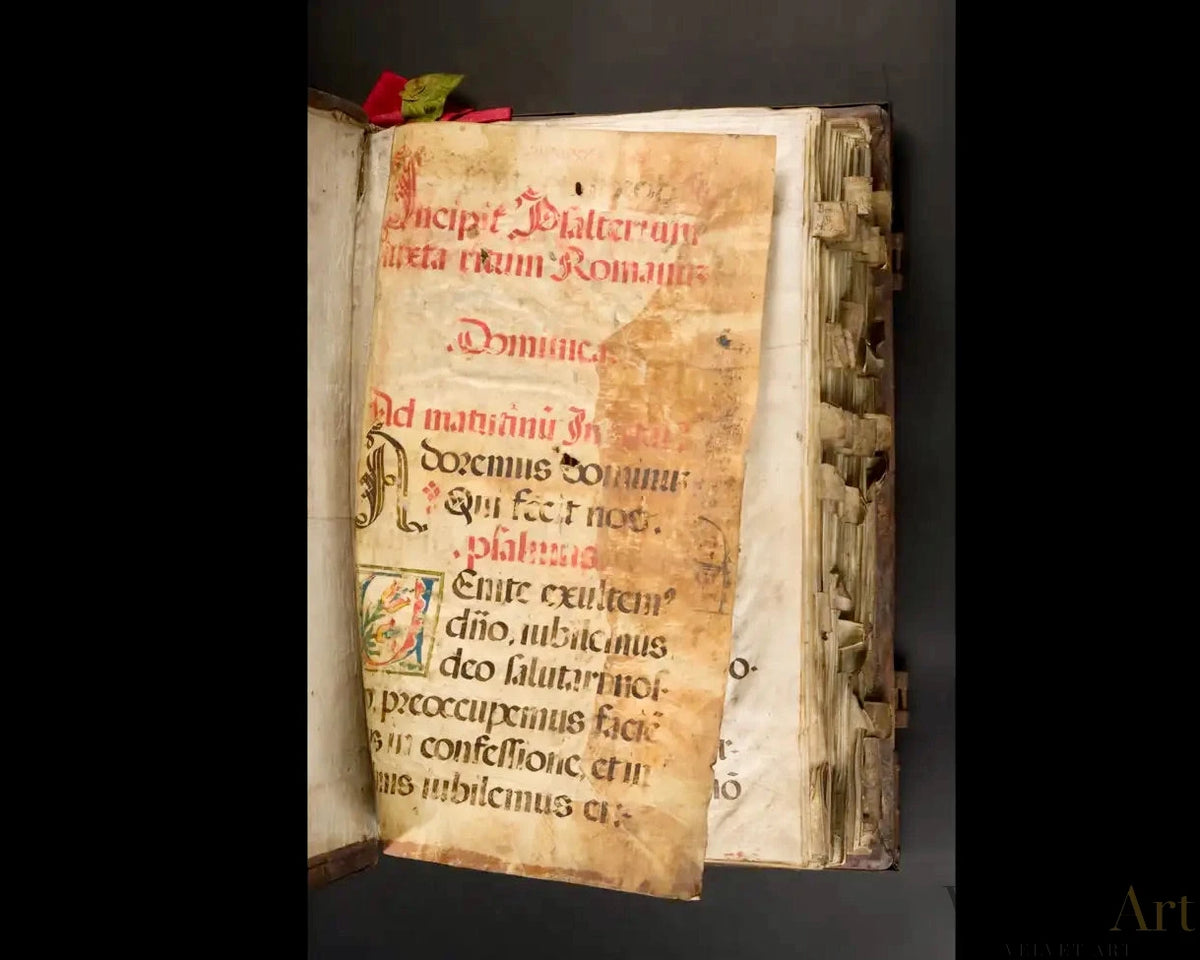 Incipit Psalterium
iuxta ritum Romanum
.Dominica.
Ad matutinū
Adoremus dominum
Qui fecit nos.
.psalmus
VEnite exultemꝰ
dño, iubilemus
deo salutari nos-
preoccupemus faciē
in confessione, et in
iubilemus ei:
Art
VELVET ART